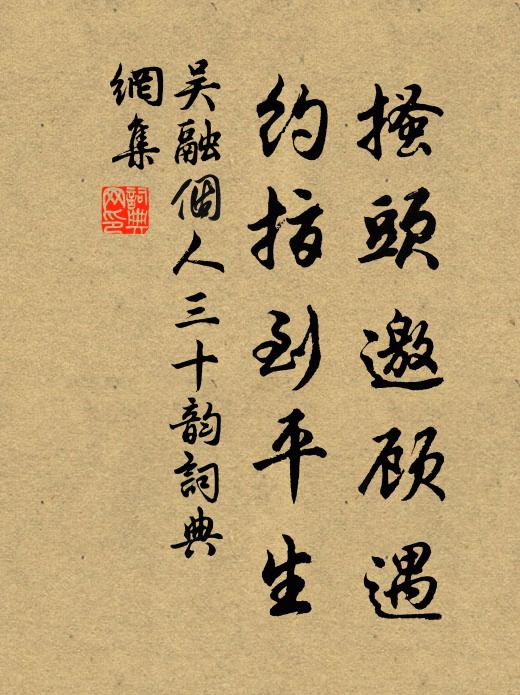 搔頭邀顾遇
约指到平生
吴融個人三十韵詞典
網集
詞典
网印